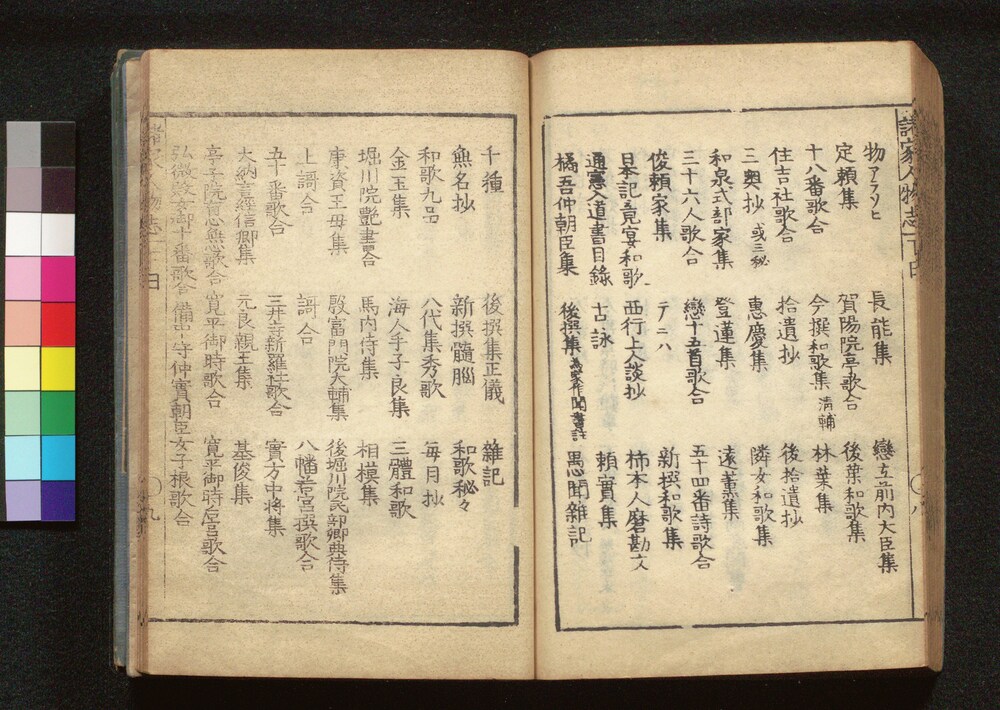 諸家人物志
物アラソヒ 長能集 戀 前内大臣集
定頼集 賀陽院亭歌合 後葉和歌集
十八番歌合 今撰和歌集 清輔 林葉集
住吉社歌合 拾遺抄 後拾遺抄
三奥抄 或三秘 惠慶集 隣女和歌集
和泉式部家集 登蓮集 遠薫集
三十六人歌合 戀十五首歌合 五十四番詩歌合
俊頼家集 テニハ 新撰和歌集
日本記竟宴和歌 西行上人談抄 柿本人麿勘文
通憲入道書目錄 古詠 頼實集
橘吾仲朝臣集 後撰集 愚聞雜記
千種 後撰集正儀 雜記
無名抄 新撰髓腦 和歌秘々
和歌九品 八代集秀歌 毎月抄
金玉集 海人手子良集 三體和歌
堀川院艶書合 馬内侍集 相模集
康資王母集 殷富門院大輔集 後堀川院民部卿典侍集
上謌合 謌合 八幡若宮撰歌合
五十番歌合 三井寺新羅社歌合 實方中将集
大納言經信卿集 元良親王集 基俊集
亭子院 歌合 寛平御時歌合 寛平御時后宮歌合
弘徽殿女御十番歌合 備中守仲實朝臣女子根歌合
諸家人物志
九